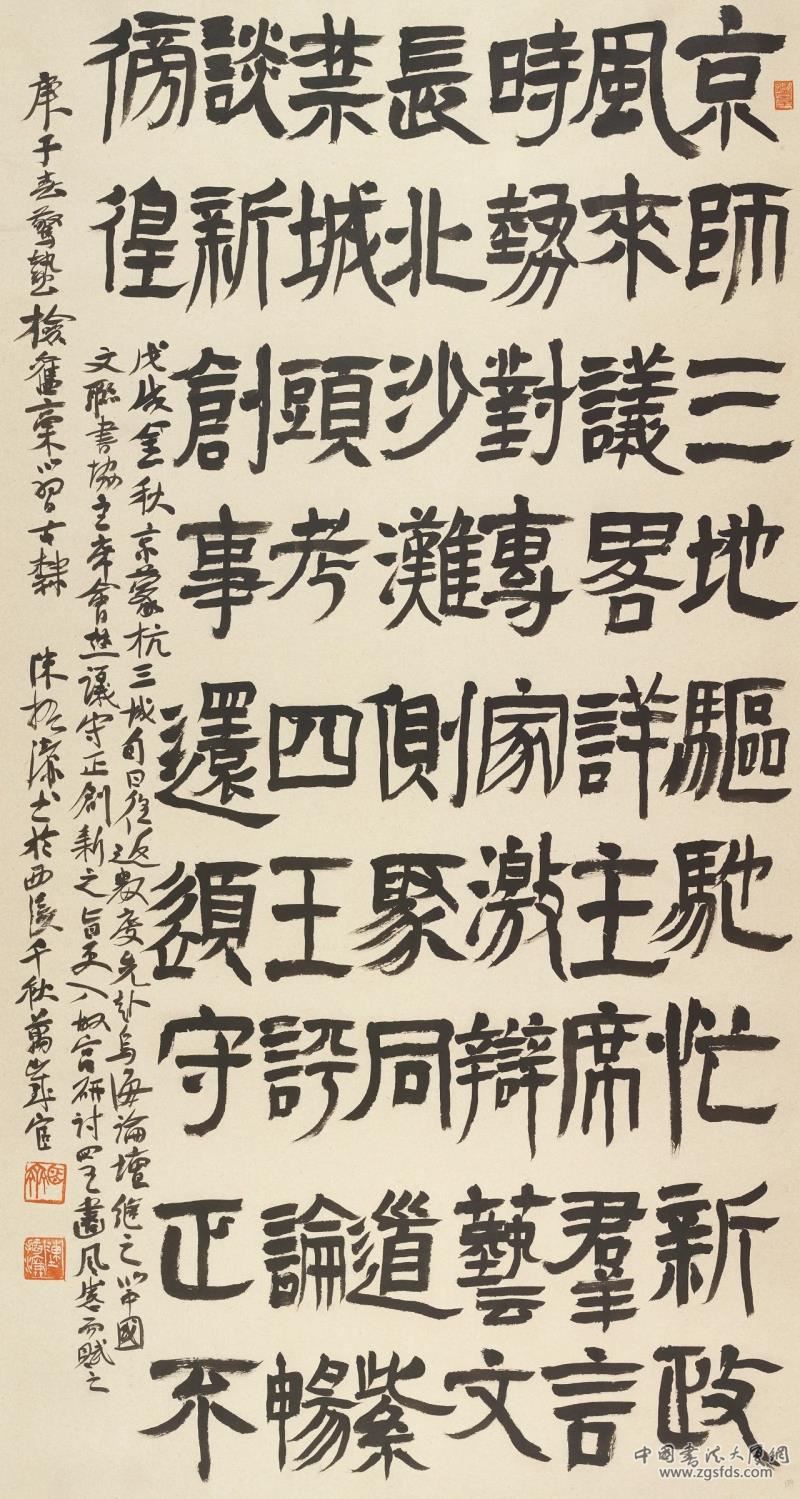 京師三地驅馳忙新政
風來議畧詳主席羣言
時勢對專家激辯藝文
長北沙灘側聚同道紫
禁城頭考四王評論暢
談新創事還須守正不
徬徨
戊戌金秋京蒙杭三城旬日往返數度先赴烏海論壇繼之以中國
文聯書協主席會熱議守正創新之旨更入故宮研討四王畫風感而賦之
庚子春驚蟄檢舊稾以習古隸 陳振濂書於西溪千秋萬歲宦
中國書法大厦網
www.zgsfds.com